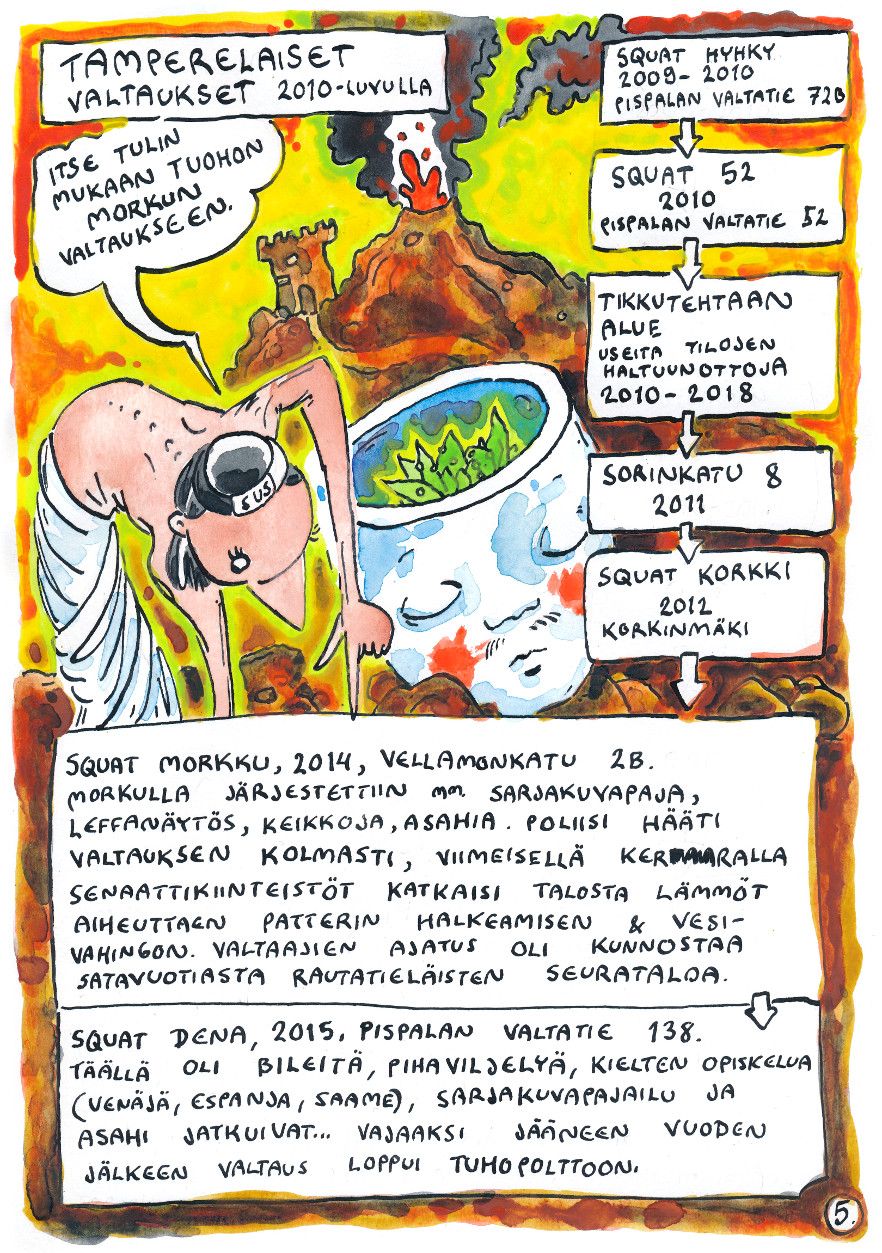 TAMPERELAISET
VALTAUKSET 2010-LUVULLA
ITSE TULIN
MUKAAN TUOHON
MORKUN
VALTAUKSEEN.
SUS
SQUAT HYHKY
2009-2010
PISPALAN VALTATIE 72B
SQUAT 52
2010
PISPALAN VALTATIE 52
TIKKUTEHTAAN
ALUE
USEITA TILOJEN
HALTUUNOTTOJA
2010-2018
SORINKATU 8
2011
SQUAT KORKKI
2012
KORKINMÄKI
SQUAT MORKKU, 2014, VELLAMONKATU 2B.
MORKULLA JÄRJESTETTIIN MM. SARJAKUVAPAJA,
LEFFANÄYTÖS, KEIKKOJA, ASAHIA. POLIISI HÄÄTI
VALTAUKSEN KOLMASTI, VIIMEISELLÄ KERRALLA
SENAATTIKIINTEISTÖT KATKAISI TALOSTA LÄMMÖT
AIHEUTTAEN PATTERIN HALKEAMISEN & VESI-
VAHINGON. VALTAAJIEN AJATUS OLI KUNNOSTAA
SATAVUOTIASTA RAUTATIELÄISTEN SEURATALOA.
SQUAT DENA, 2015, PISPALAN VALTATIE 138.
TÄÄLLÄ OLI BILEITÄ, PIHAVILJELYÄ, KIELTEN OPISKELUA
(VENÄJÄ, ESPANJA, SAAME), SARJAKUVAPAJAILU JA
ASAHI JATKUIVAT... VAJAAKSI JÄÄNEEN VUODEN
JÄLKEEN VALTAUS LOPPUI TUHOPOLTTOON.
5.